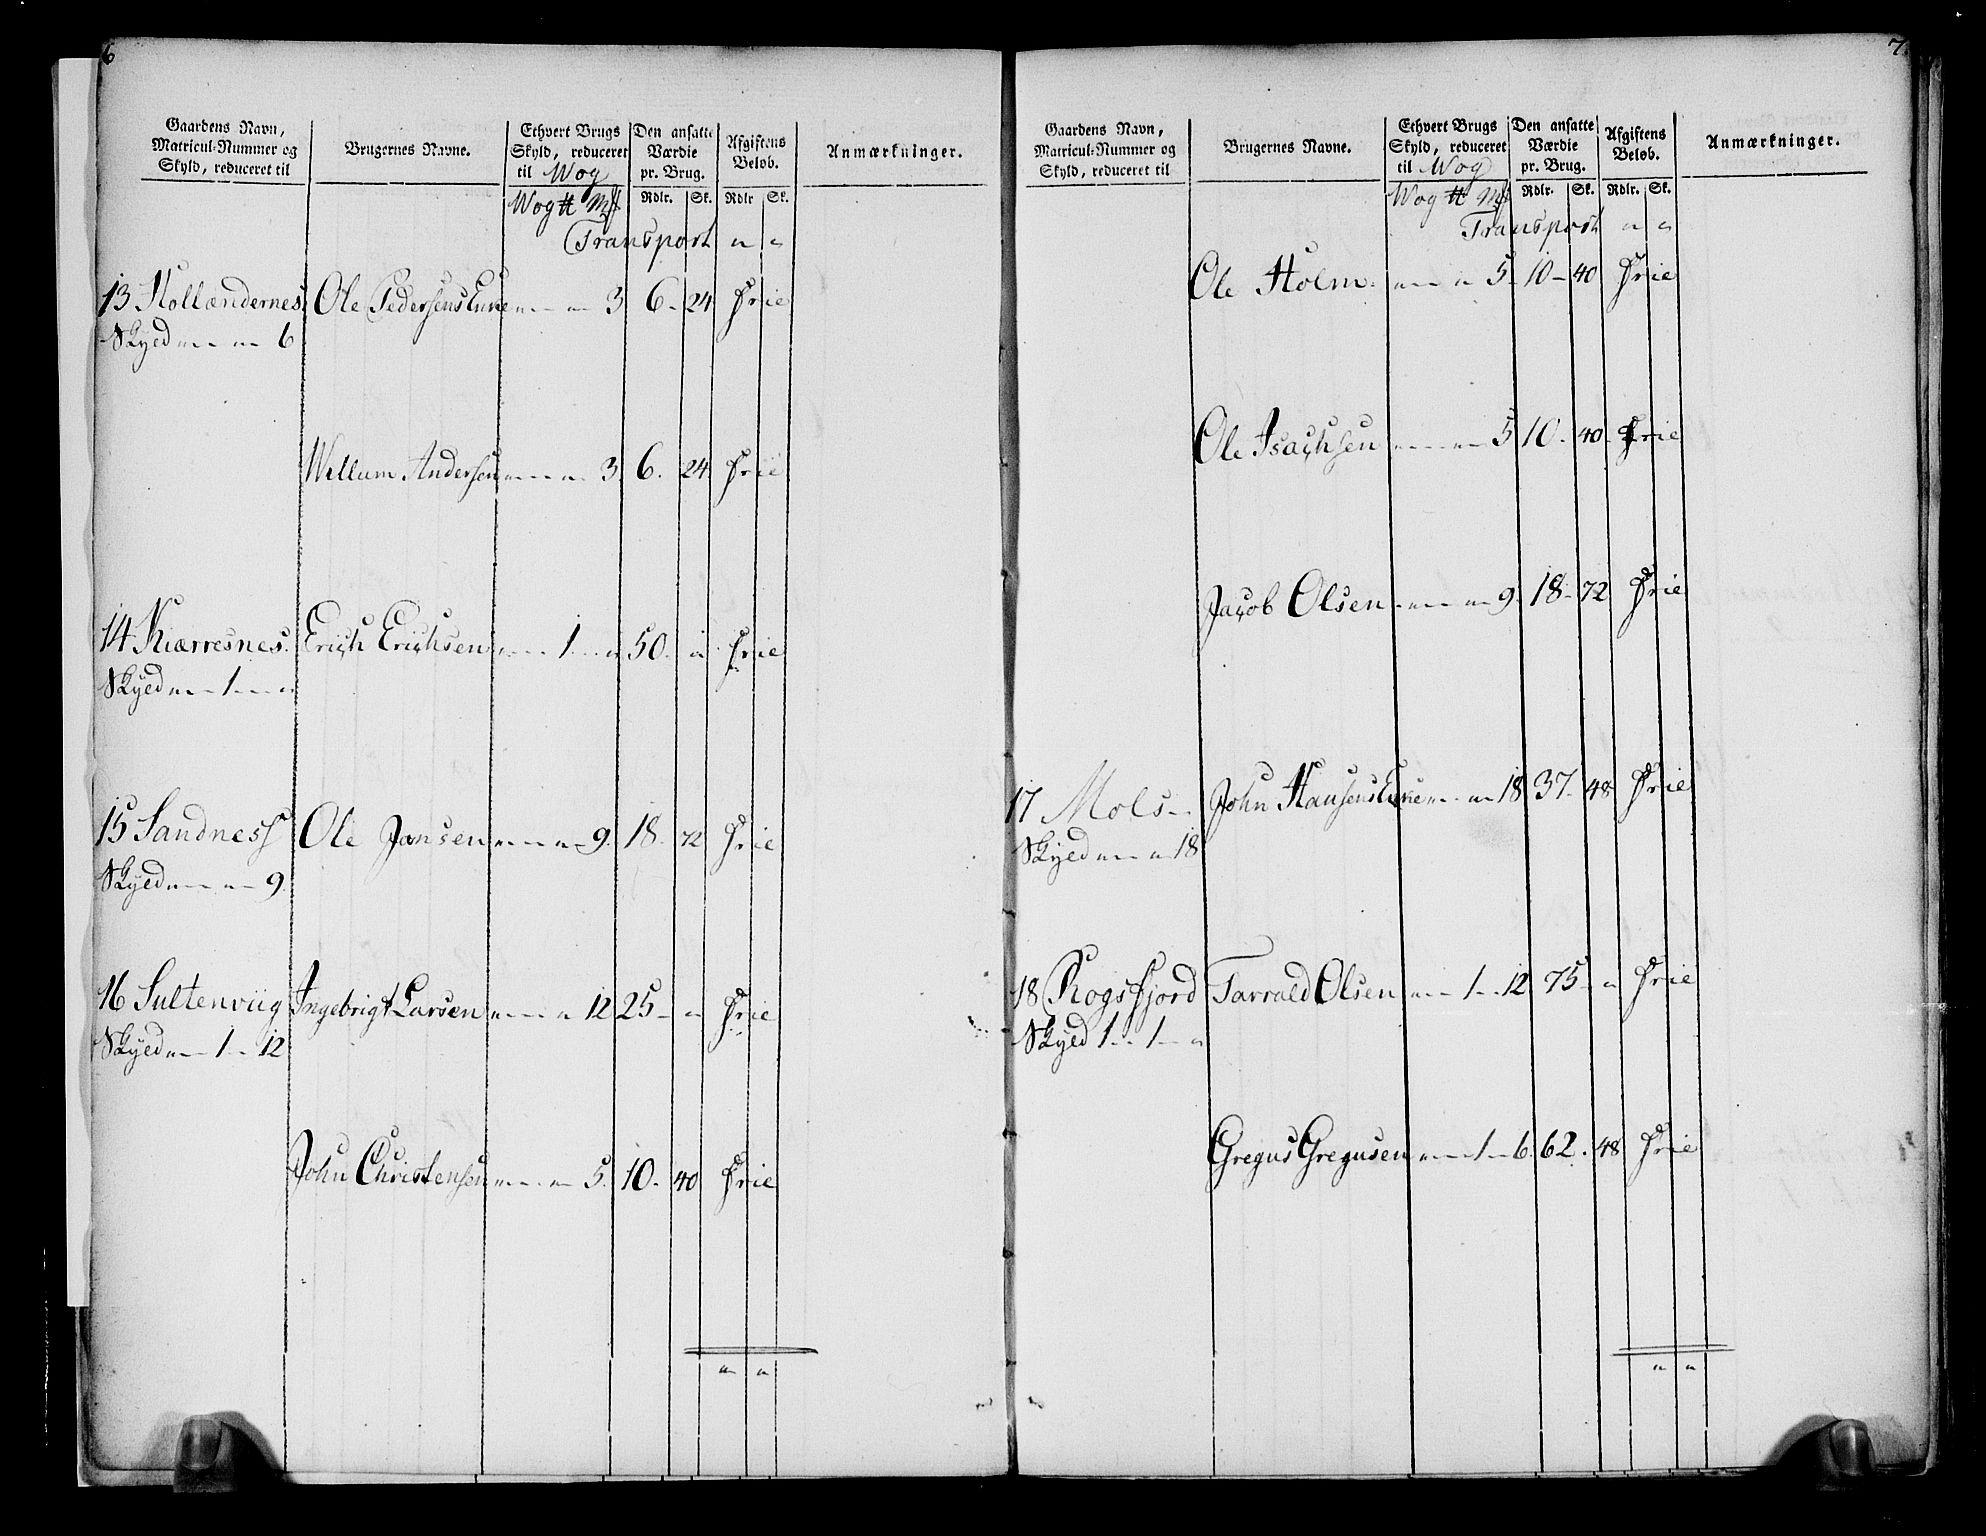 6
Gaardens Navn, Matricul-Nummer og Skyld, reduceret til
Brugernes Navne.
Ethvert Brugs Skyld, reduceret til Wog
Den ansatte Værdie pr. Brug.
Afgiftens Beløb.
Anmærkninger.
Wog ℔ Mk Rdlr. Sk. Rdlr Sk.
Transport " "
13 Hollændernes Ole Pedersens Enke " " 3 6 - 24 Frie
Skyld " " 6
Wellum Andersen " " 3 6. 24 Frie
14 Kiærresnes. Erich Erichsen " 1 " 50. " Frie
Skyld " 1 "
15 Sandness Ole Jansen " " 9. 18. 72 Frie
Skyld " " 9
16 Sultenviig Ingebrigt Larsen " " 12 25 - " Frie
Skyld " 1 - 12
John Christensen " " 5. 10. 40 Frie
" "
7.
Gaardens Navn, Matricul-Nummer og Skyld, reduceret til
Brugernes Navne.
Ethvert Brugs Skyld, reduceret til Wog
Den ansatte Værdie pr. Brug.
Afgiftens Beløb.
Anmærkninger.
Wog ℔ Mk Rdlr. Sk. Rdlr. Sk.
Transport " "
Ole Holm. " " 5 10 - 40 Frie
Ole Isachsen " " 5 10. 40. Frie
Jacob Olsen " " 9. 18 - 72 Frie
17 Mols - John Hansens Enke " " 18 37 - 48 Frie
Skyld " " 18
18 Rogsfjord Tarrald Olsen " 1 - 12 75 - " Frie
Skyld 1 - 1 - "
Gregus Gregusen " 1 - 6 62. 48 Frie
" "